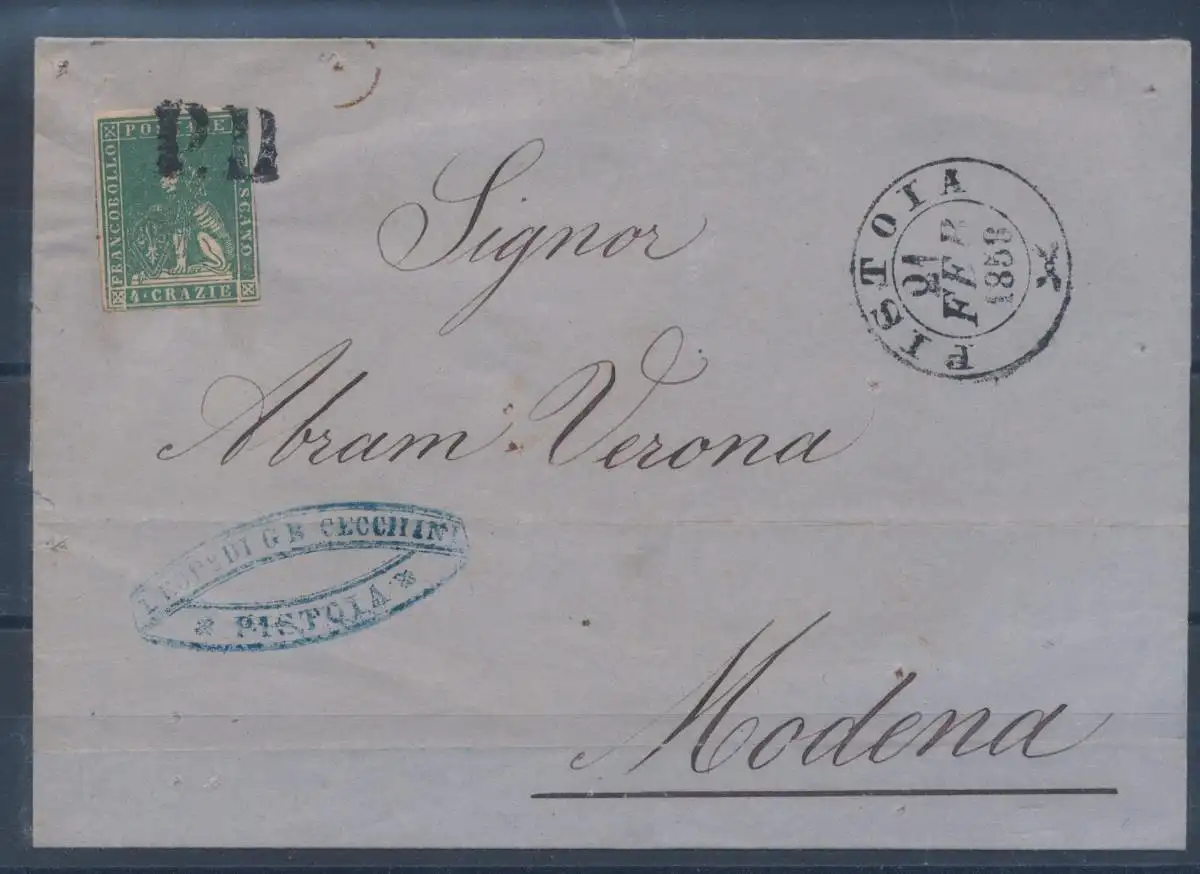 P.D
FRANCOBOLLO
POSTALE
TOSCANO
4·CRAZIE
Signor
PISTOIA
21
FEB
1859
Abram Verona
DI G B CECCHINI
* PISTOIA *
Modena